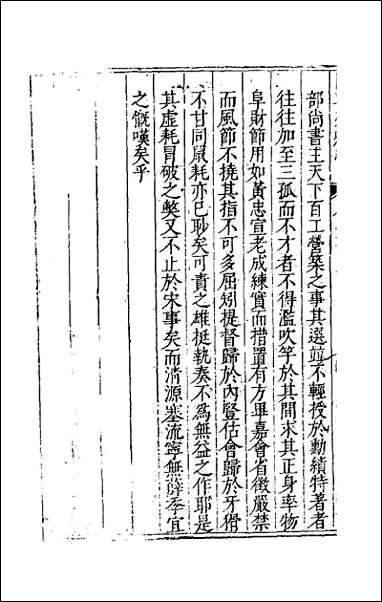 部尚書主天下百工營築之事其選並不輕授於勳績特著者
往往加至三孤而不才者不得濫吹竽於其間求其正身率物
阜財節用如黃忠宣老成練實而措置有方畢嘉會省徵嚴禁
而風節不撓其指不可多屈矧提督歸於內豎估會歸於牙猾
不甘同鼠耗亦已眇矣可責之雄挺執奏不為無益之作耶是
其虛耗冒破之弊又不止於宋事矣而清源塞流寧無薛季宜
之慨嘆矣乎